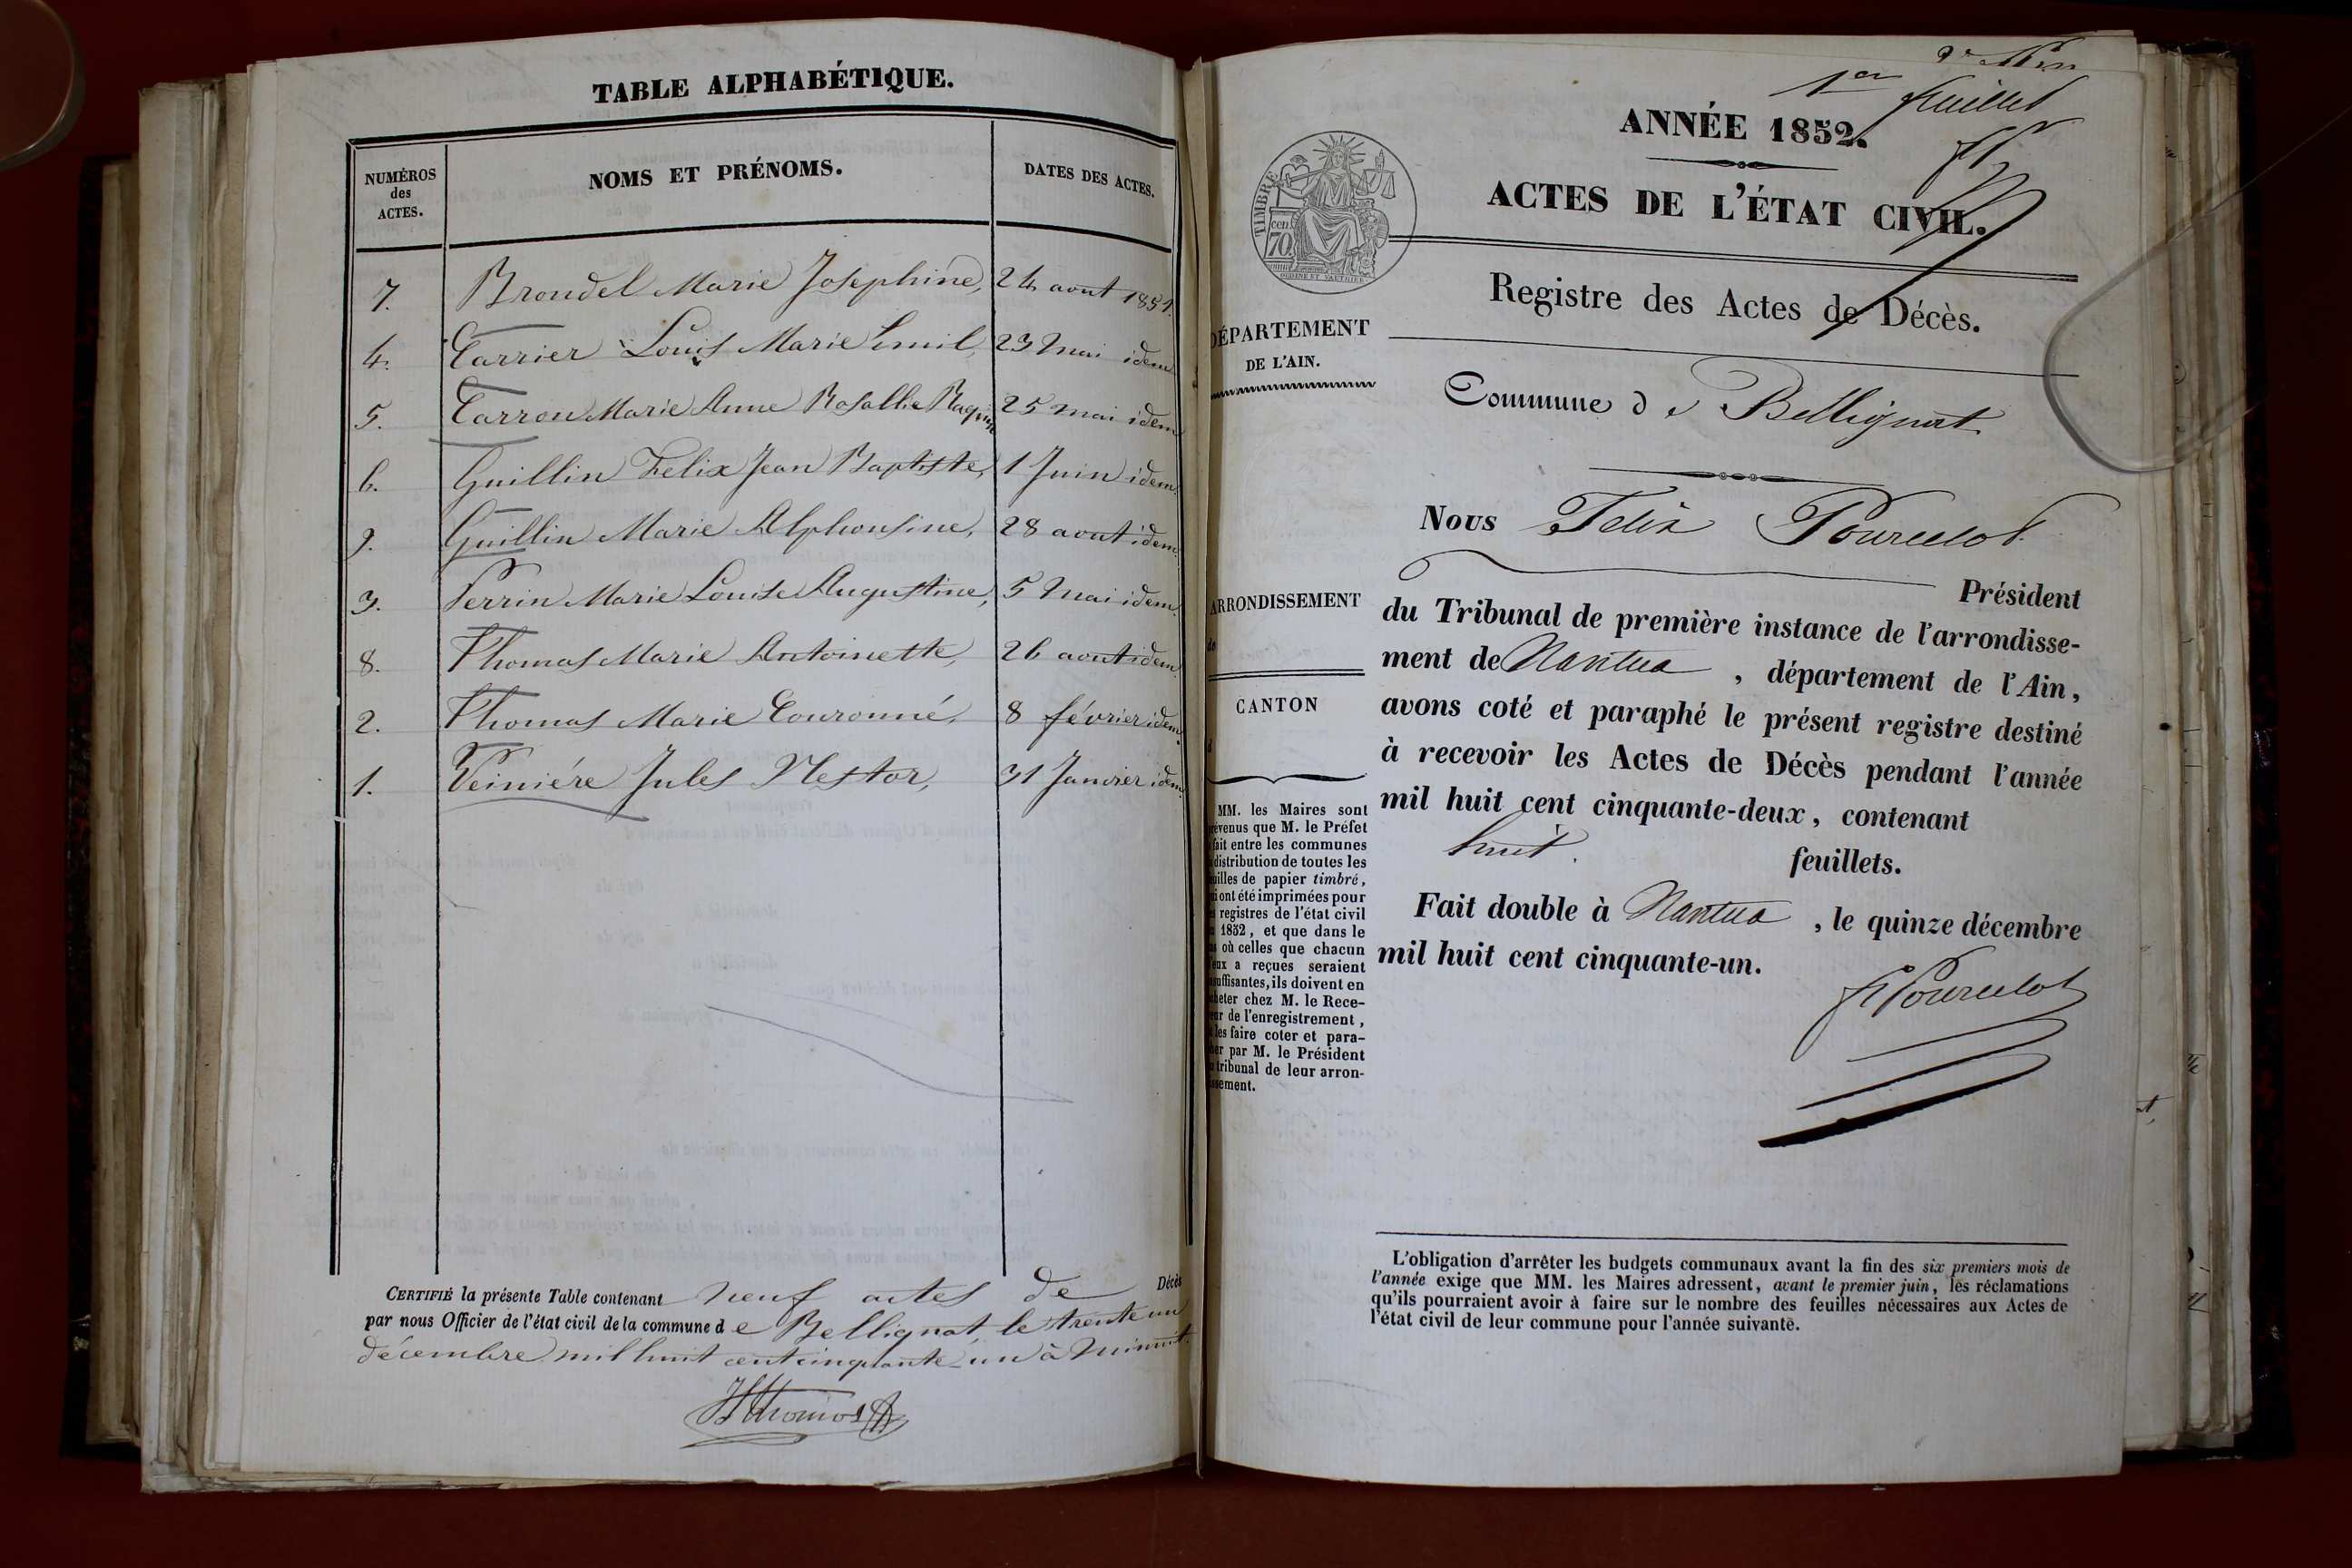 TABLE ALPHABÉTIQUE.
NUMÉROS des ACTES.
NOMS ET PRÉNOMS.
DATES DES ACTES.
7. Brondel Marie Josephine, 24 aout 1851.
4. Carrier Louis Marie Emil, 23 Mai idem
5. Carron Marie Anne Rosallie 25 mai idem
6. Guillin Felix Jean Baptiste, 1 Juin idem.
9. Guillin Marie Alphonsine, 28 aout idem.
3. Perrin Marie Louise Augustine, 5 Mai idem.
8. Thomas Marie Antoinette, 26 aout idem
2. Thomas Marie Couronné, 8 février idem.
1. Veiniére Jules Nestor, 31 Janvier idem.
CERTIFIÉ la présente Table contenant neuf actes de Décès
par nous Officier de l'état civil de la commune de Bellignat, le trente un
décembre mil huit cent cinquante-un à minuit.
Thomas
1er feuillet
ANNÉE 1852.
ACTES DE L'ÉTAT CIVIL.
TIMBRE
70 cen
Registre des Actes de Décès.
DÉPARTEMENT
DE L'AIN.
Commune de Bellignat
Nous Felix Pourcelot
Président
du Tribunal de première instance de l'arrondisse-
ment de Nantua, département de l'Ain,
avons coté et paraphé le présent registre destiné
à recevoir les Actes de Décès pendant l'année
mil huit cent cinquante-deux, contenant
huit. feuillets.
Fait double à Nantua, le quinze décembre
mil huit cent cinquante-un.
F Pourcelot
ARRONDISSEMENT
de
CANTON
d
MM. les Maires sont
révenus que M. le Préfet
fait entre les communes
distribution de toutes les
uilles de papier timbré,
i ont été imprimées pour
s registres de l'état civil
1852, et que dans le
s où celles que chacun
eux a reçues seraient
suffisantes, ils doivent en
heter chez M. le Rece-
ur de l'enregistrement,
les faire coter et para-
er par M. le Président
tribunal de leur arron-
ssement.
L'obligation d'arrêter les budgets communaux avant la fin des six premiers mois de
l'année exige que MM. les Maires adressent, avant le premier juin, les réclamations
qu'ils pourraient avoir à faire sur le nombre des feuilles nécessaires aux Actes de
l'état civil de leur commune pour l'année suivante.